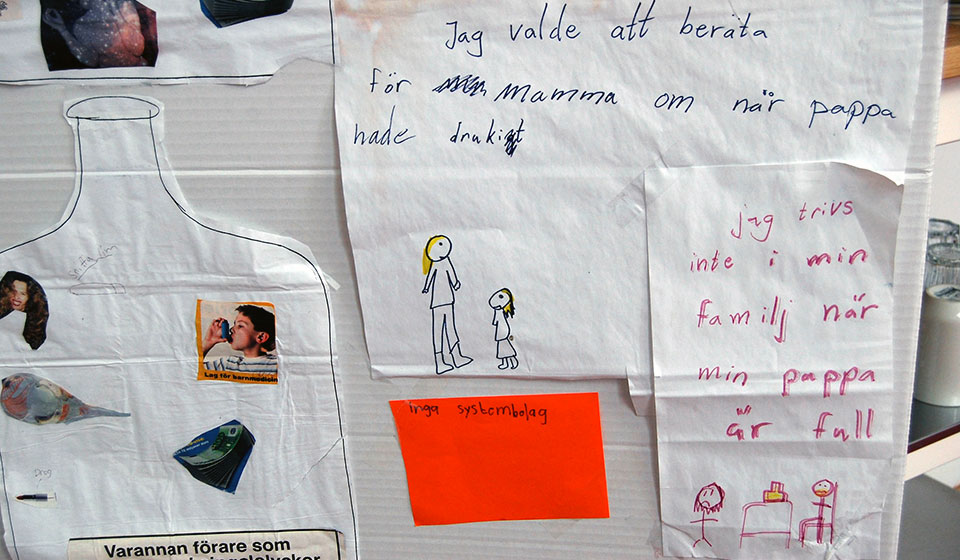 Jag valde att beräta
för mamma om när pappa
hade drukit
jag trivs
inte i min
familj när
min pappa
är full
inga systembolag
Lag för barnmedicin
Drog
Varannan förare som